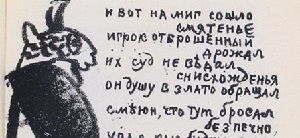 И ВОТ НА МИГ СОШЛО
СМЯТЕНЬЕ
ИГРОК ОТБРОШЕННЫЙ
ДРОЖАЛ
ИХ СУД НЕ ВЕДАЛ
СНИСХОЖДЕНЬЯ
ОН ДУШУ В ЗЛАТО ОБРАЩАЛ
СМЕЮН, ЧТО ТУТ БРОСАЛ
БЕЗПЕЧНО,